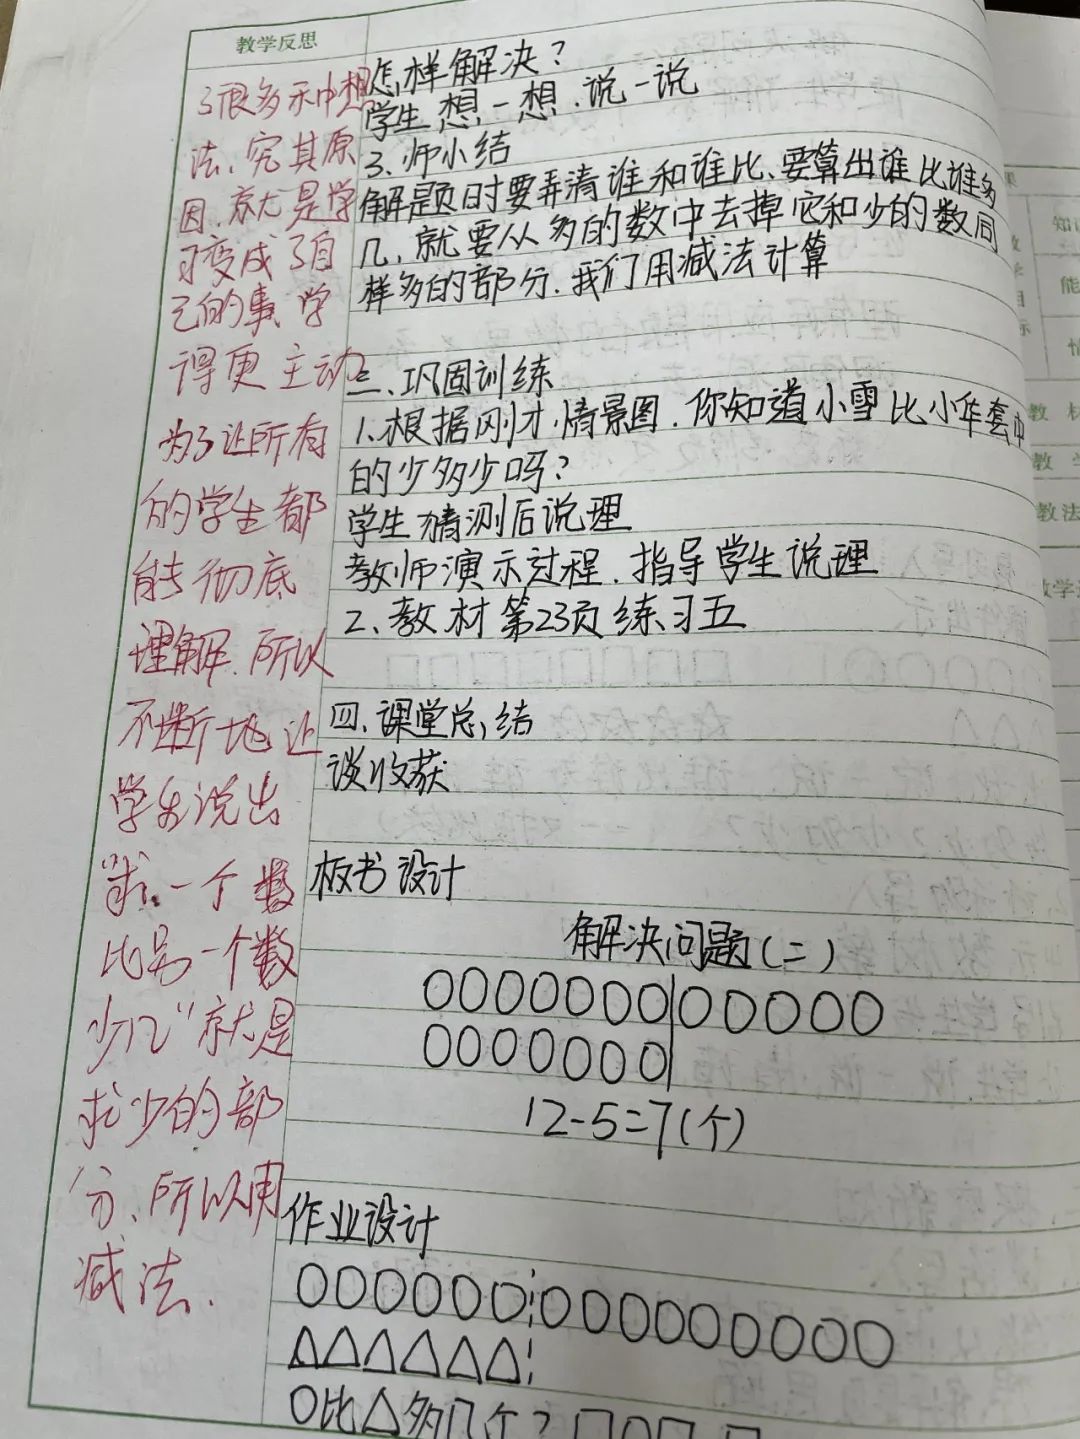 教学反思
了很多示中想
法、究其原
因.就是学
习变成了自
己的事、学
得更主动
为了让所有
的学生都
能彻底
理解.所以
不断地让
学生说出
“求一个数
比另一个数
少几”就是
求少的部
分、所以用
减法.
怎样解决？
学生想一想.说一说
3、师小结
解题时要弄清谁和谁比、要算出谁比谁多
几、就要从多的数中去掉它和少的数同
样多的部分.我们用减法计算
三、巩固训练
1、根据刚才情景图.你知道小雪比小华套中
的少多少吗？
学生猜测后说理
教师演示过程.指导学生说理
2、教材第23页练习五
四、课堂总结
谈收获
板书设计
解决问题(二)
○○○○○○○|○○○○○
○○○○○○○|
12-5=7(个)
作业设计
○○○○○○¦○○○○○○○○○
△△△△△△¦
○比△多几个？□○□ □
知
能
情
教材
教学
教法